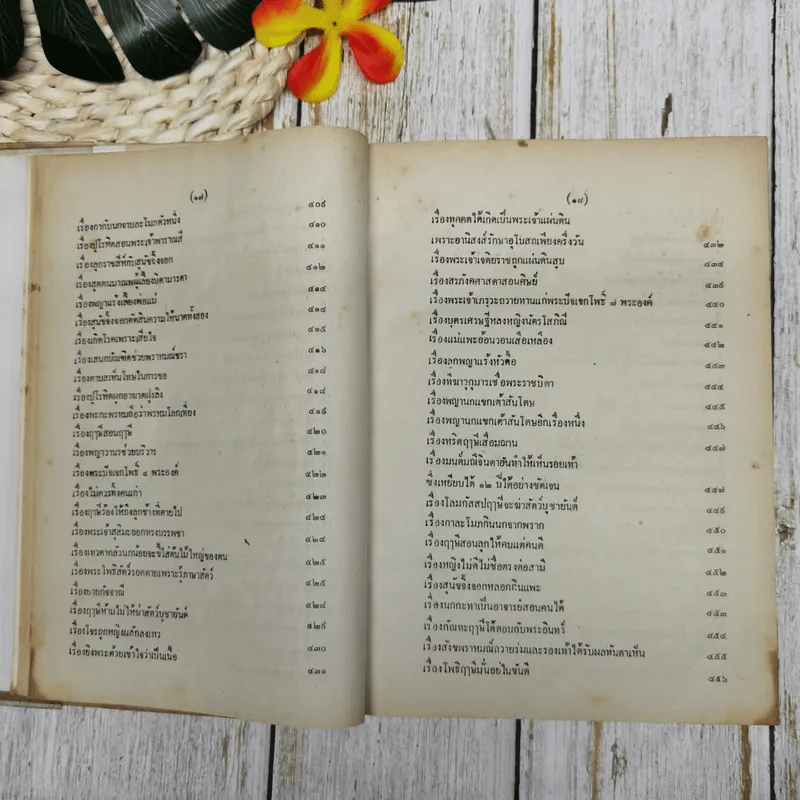 (๑๗)
เรื่องกากับนกจาบละโมภตัวหนึ่ง ๔๐๙
เรื่องปุโรหิตสอนพระเจ้าพาราณสี ๔๑๐
เรื่องลูกราชสีห์กับสุนัขจิ้งจอก ๔๑๑
เรื่องสุตตนมาณพผู้เลี้ยงบิดามารดา ๔๑๒
เรื่องพญาแร้งเลี้ยงพ่อแม่ ๔๑๔
เรื่องสุนัขจิ้งจอกตัดสินความให้นาคทั้งสอง ๔๑๔
เรื่องเกิดโรคเพราะเสียใจ ๔๑๕
เรื่องเสนกบัณฑิตช่วยพราหมณ์ชรา ๔๑๖
เรื่องดาบสเห็นโทษในการขอ ๔๑๘
เรื่องปุโรหิตผูกอาฆาตฝูงลิง ๔๑๘
เรื่องพะกะพรหมถือว่าพรหมโลกเที่ยง ๔๑๙
เรื่องฤๅษีสอนฤๅษี ๔๒๐
เรื่องพญาวานรช่วยบริวาร ๔๒๑
เรื่องพระปัจเจกโพธิ์ ๔ พระองค์ ๔๒๒
เรื่องไม่ควรทิ้งคนเก่า ๔๒๓
เรื่องฤๅษีร้องไห้ถึงลูกช้างที่ตายไป ๔๒๔
เรื่องพระเจ้าสุสิมะออกทรงบรรพชา ๔๒๔
เรื่องเทวดากลัวนกน้อยจะขี้ใส่ต้นไม้ใหญ่ของตน ๔๒๕
เรื่องพระโพธิสัตว์รอดตายเพราะรู้ภาษาสัตว์ ๔๒๕
เรื่องยายกัจจานี ๔๒๘
เรื่องฤๅษีห้ามไม่ให้ฆ่าสัตว์บูชายันต์ ๔๒๙
เรื่องโจรถูกหญิงผลักลงเหว ๔๓๐
เรื่องยิงพระด้วยเข้าใจว่าเป็นเนื้อ ๔๓๑
(๑๘)
เรื่องทุคคตได้เกิดเป็นพระเจ้าแผ่นดิน
เพราะอานิสงส์รักษาอุโบสถเพียงครึ่งวัน ๔๓๒
เรื่องพระเจ้าเจติยราชถูกแผ่นดินสูบ ๔๓๔
เรื่องสรภังคศาสดาสอนศิษย์ ๔๓๙
เรื่องพระเจ้าเภรุวะถวายทานแก่พระปัจเจกโพธิ์ ๗ พระองค์ ๔๔๐
เรื่องบุตรเศรษฐีหลงหญิงนัตรโสภิณี ๔๔๑
เรื่องแม่แพะอ้อนวอนเสือเหลือง ๔๔๒
เรื่องลูกพญาแร้งหัวดื้อ ๔๔๓
เรื่องทีฆาวุกุมารเชื่อพระราชบิดา ๔๔๔
เรื่องพญานกแขกเต้าสันโดษ ๔๔๕
เรื่องพญานกแขกเต้าสันโดษอีกเรื่องหนึ่ง ๔๔๖
เรื่องหริตฤๅษีเสื่อมฌาน ๔๔๗
เรื่องมนต์มณีจินดาอันทำให้เห็นรอยเท้า
ซึ่งเหยียบได้ ๑๒ ปีได้อย่างชัดเจน ๔๔๗
เรื่องโลมกัสสปฤๅษีจะฆ่าสัตว์บูชายันต์ ๔๔๙
เรื่องกาละโมภกินนกจากพราก ๔๕๐
เรื่องฤๅษีสอนลูกให้คบแต่คนดี ๔๕๑
เรื่องหญิงไม่ดีไม่ซื่อตรงต่อสามี ๔๕๒
เรื่องสุนัขจิ้งจอกหลอกกินแพะ ๔๕๓
เรื่องนกกะทาเป็นอาจารย์สอนคนได้ ๔๕๓
เรื่องกัณหะฤๅษีโต้ตอบกับพระอินทร์ ๔๕๔
เรื่องสังขพราหมณ์ถวายร่มและรองเท้าได้รับผลทันตาเห็น ๔๕๕
เรื่องโพธิฤๅษีมั่นอยู่ในขันติ ๔๕๖